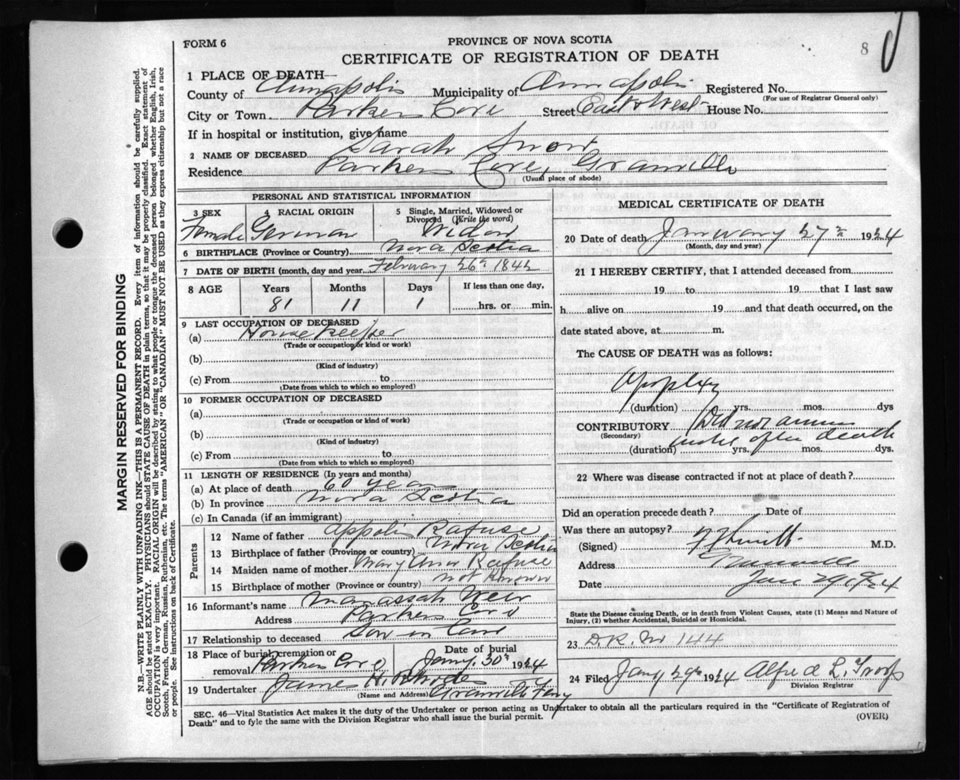 FORM 6
PROVINCE OF NOVA SCOTIA
CERTIFICATE OF REGISTRATION OF DEATH
8
1 PLACE OF DEATH—
County of Annapolis Municipality of Annapolis Registered No.
(For use of Registrar General only)
City or Town Parkers Cove Street East & West House No.
If in hospital or institution, give name
2 NAME OF DECEASED Sarah
Residence Parkers Cove, Granville
(Usual place of abode)
PERSONAL AND STATISTICAL INFORMATION
3 SEX 4 RACIAL ORIGIN 5 Single, Married, Widowed or Divorced (Write the word)
Female German Widow
6 BIRTHPLACE (Province or Country) Nova Scotia
7 DATE OF BIRTH (month, day and year) February 26th 1842
8 AGE Years Months Days If less than one day,
81 11 1 hrs. or min.
9 LAST OCCUPATION OF DECEASED
(a) House Keeper
(Trade or occupation or kind or work)
(b)
(Kind of industry)
(c) From to
(Date from which to which so employed)
10 FORMER OCCUPATION OF DECEASED
(a)
(Trade or occupation or kind or work)
(b)
(Kind of industry)
(c) From to
(Date from which to which so employed)
11 LENGTH OF RESIDENCE (In years and months)
(a) At place of death 60 years
(b) In province Nova Scotia
(c) In Canada (if an immigrant)
Parents
12 Name of father Rafuse
13 Birthplace of father (Province or country) Nova Scotia
14 Maiden name of mother Mary Ann Rafuse
15 Birthplace of mother (Province or country) not known
16 Informant's name Manassah Weir
Address Parkers Cove
17 Relationship to deceased Son in Law
18 Place of burial, cremation or removal Parkers Cove Date of burial Jany 30th 1924
19 Undertaker James H. Rhodes
(Name and Address) Granville Ferry
MEDICAL CERTIFICATE OF DEATH
20 Date of death January 27th 1924
(Month, day and year)
21 I HEREBY CERTIFY, that I attended deceased from
19 to 19 that I last saw
h alive on 19 and that death occurred, on the
date stated above, at m.
The CAUSE OF DEATH was as follows:
Apoplexy
(duration) yrs. mos. dys
CONTRIBUTORY Did not arrive
(Secondary) until after death
(duration) yrs. mos. dys.
22 Where was disease contracted if not at place of death?
Did an operation precede death? Date of
Was there an autopsy?
(Signed) M.D.
Address
Date Jan 29 1924
State the Disease causing Death, or in death from Violent Causes, state (1) Means and Nature of Injury, (2) whether Accidental, Suicidal or Homicidal.
23 D.R. No 144
24 Filed Jany 29th 1924 Alfred L. Troop
Division Registrar
SEC. 46—Vital Statistics Act makes it the duty of the Undertaker or person acting as Undertaker to obtain all the particulars required in the "Certificate of Registration of
Death" and to fyle the same with the Division Registrar who shall issue the burial permit.
(OVER)
MARGIN RESERVED FOR BINDING
N.B.—WRITE PLAINLY WITH UNFADING INK—THIS IS A PERMANENT RECORD. Every item of information should be carefully supplied.
AGE should be stated EXACTLY. PHYSICIANS should STATE CAUSE OF DEATH in plain terms, so that it may be properly classified. Exact statement of
OCCUPATION is very important. RACIAL ORIGIN will be described by stating to what people or tongue the deceased person belonged whether English, Irish,
Scotch, French, German, Russian, Ruthenian, etc. The terms "AMERICAN" or "CANADIAN" MUST NOT BE USED as they express citizenship but not a race
or people. See instructions on back of Certificate.